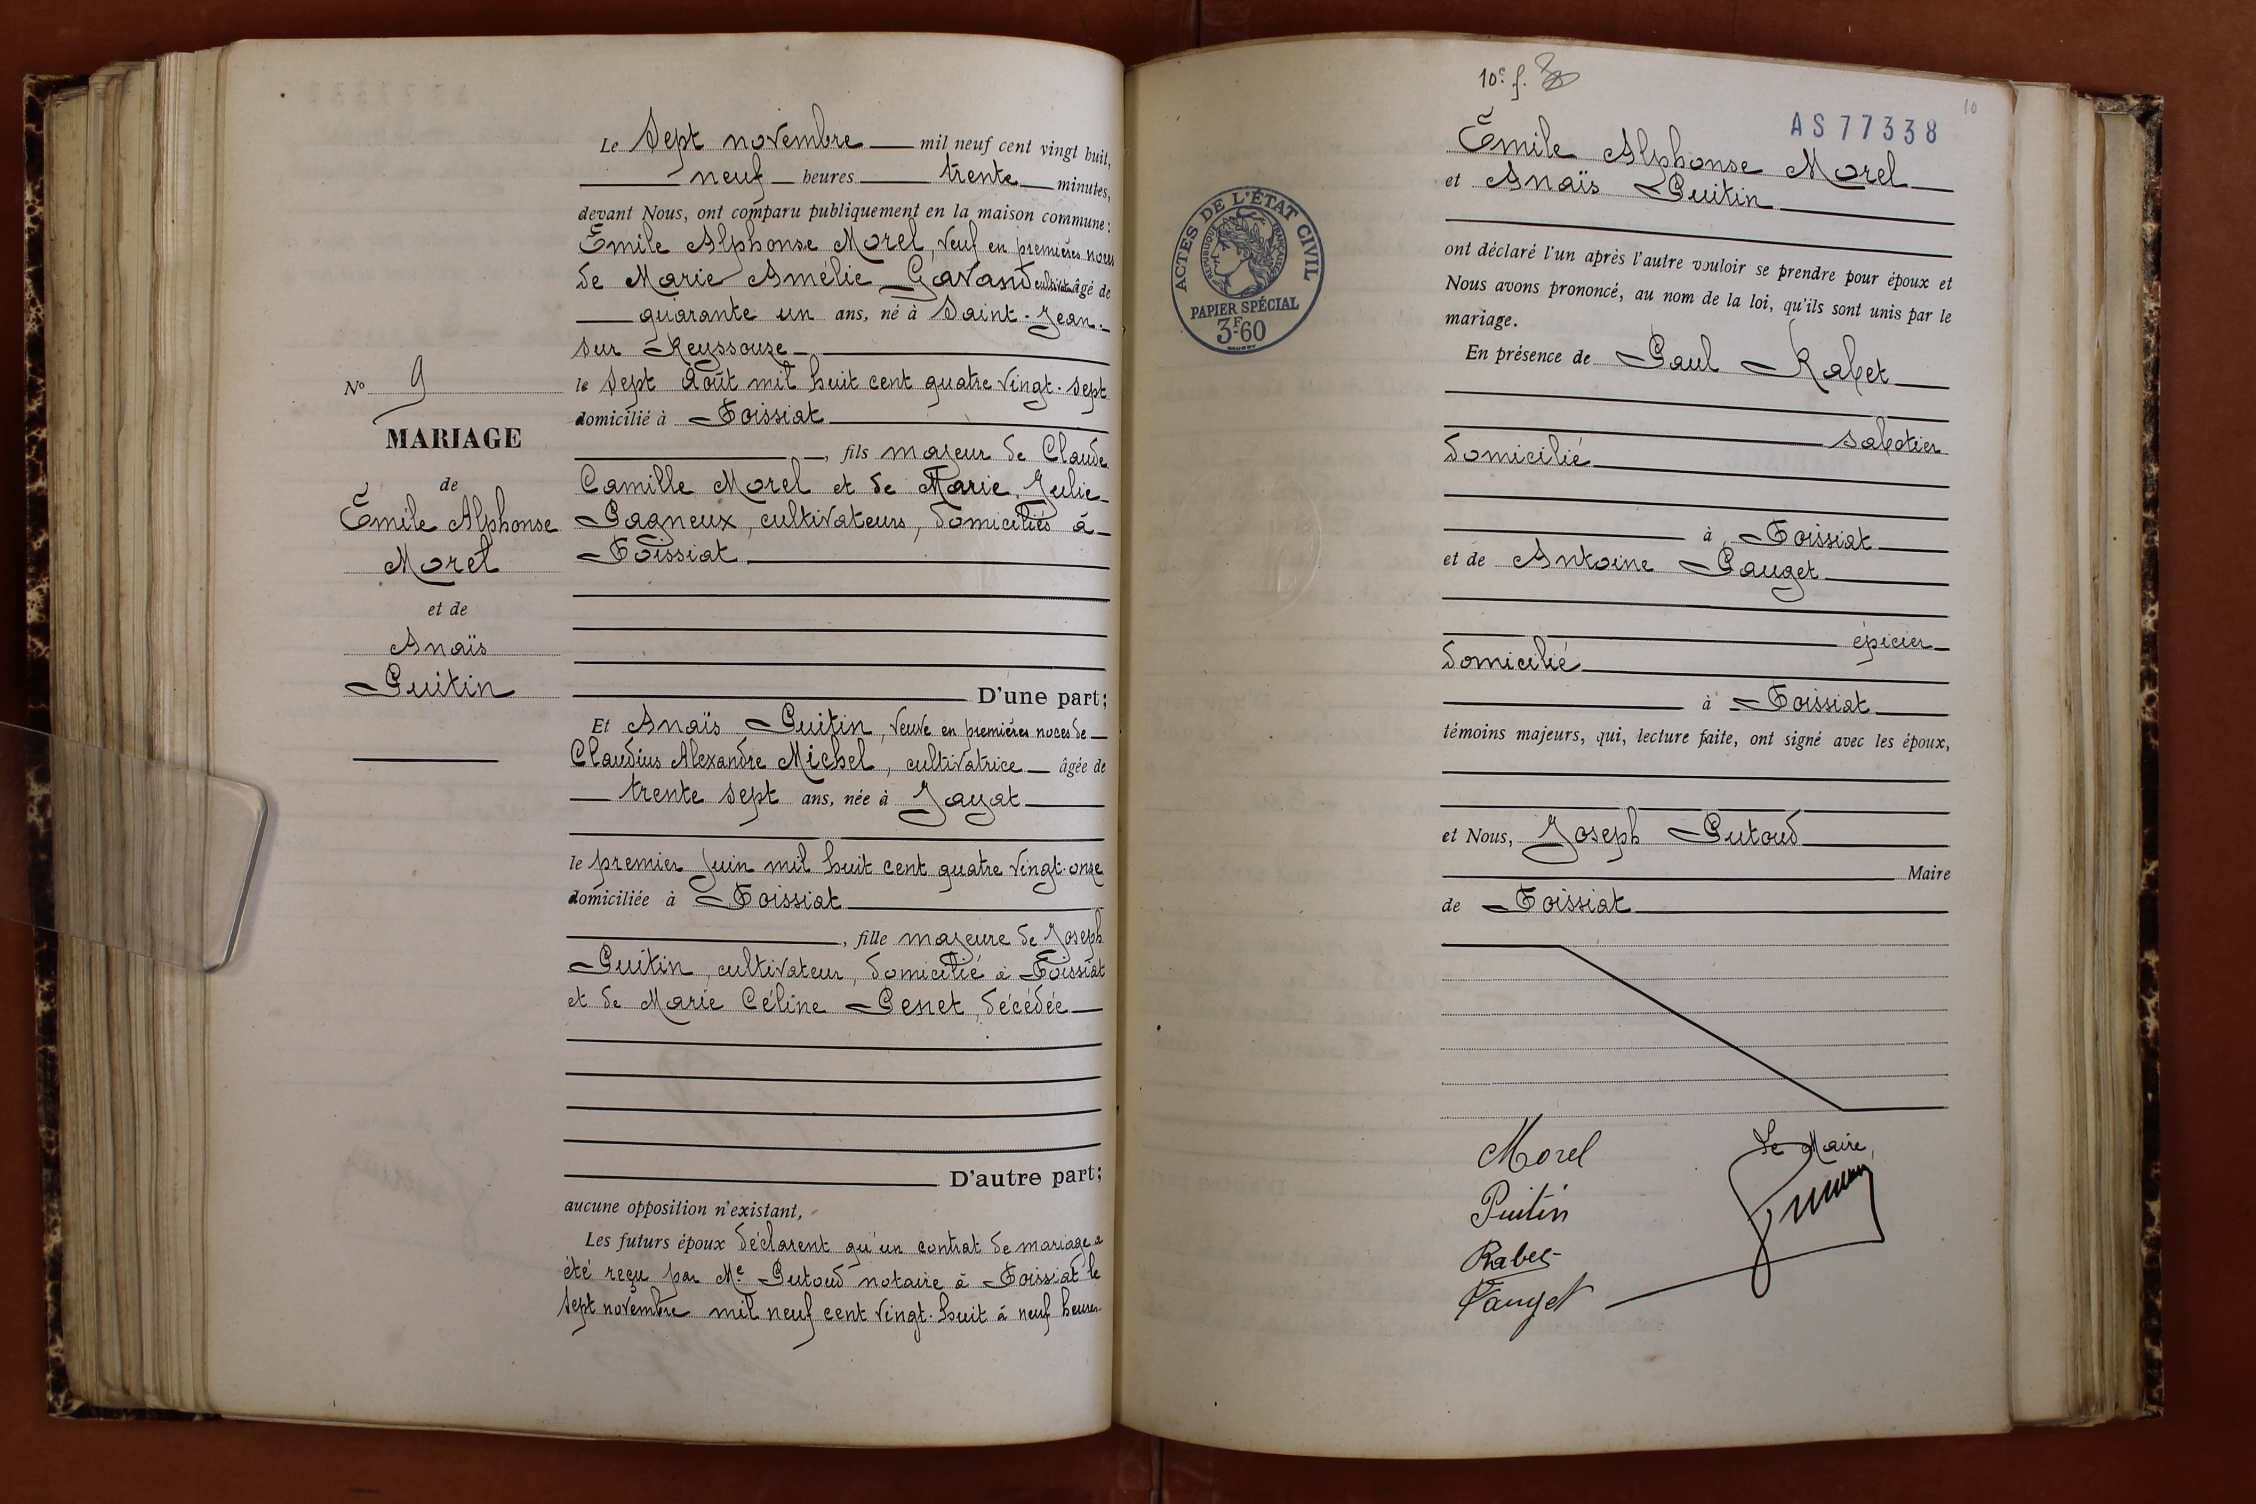 Le Sept novembre mil neuf cent vingt huit,
neuf heures trente minutes,
devant Nous, ont comparu publiquement en la maison commune :
Émile Alphonse Morel, veuf en premières noces
de Marie Amélie Gavand cultivateur âgé de
quarante un ans, né à Saint-Jean-
sur Reyssouze
le sept Août mil huit cent quatre vingt-sept
domicilié à Foissiat
, fils majeur de Claude
Camille Morel et de Marie Julie
Pagneux, cultivateurs, domiciliés à
Foissiat
D'une part;
Et Anaïs Puitin, veuve en premières noces de
Claudius Alexandre Michel, cultivatrice âgée de
trente sept ans, née à Jayat
le premier Juin mil huit cent quatre vingt-onze
domiciliée à Foissiat
, fille majeure de Joseph
Puitin, cultivateur, domicilié à Foissiat
et de Marie Céline Penet, décédée
D'autre part;
aucune opposition n'existant,
Les futurs époux déclarent qu'un contrat de mariage a
été reçu par Me Putoud notaire à Foissiat le
sept novembre mil neuf cent vingt-huit à neuf heures
No 9
MARIAGE
de
Émile Alphonse
Morel
et de
Anaïs
Puitin
10e f.
10
AS77338
ACTES DE L'ÉTAT CIVIL
RÉPUBLIQUE FRANÇAISE
PAPIER SPÉCIAL
3F60
Émile Alphonse Morel
et Anaïs Puitin
ont déclaré l'un après l'autre vouloir se prendre pour époux et
Nous avons prononcé, au nom de la loi, qu'ils sont unis par le
mariage.
En présence de Paul Rabet
sabotier
domicilié
à Foissiat
et de Antoine Pauget
épicier
domicilié
à Foissiat
témoins majeurs, qui, lecture faite, ont signé avec les époux,
et Nous, Joseph Putoud
Maire
de Foissiat
Morel
Le Maire,
Puitin
Rabet
Pauget